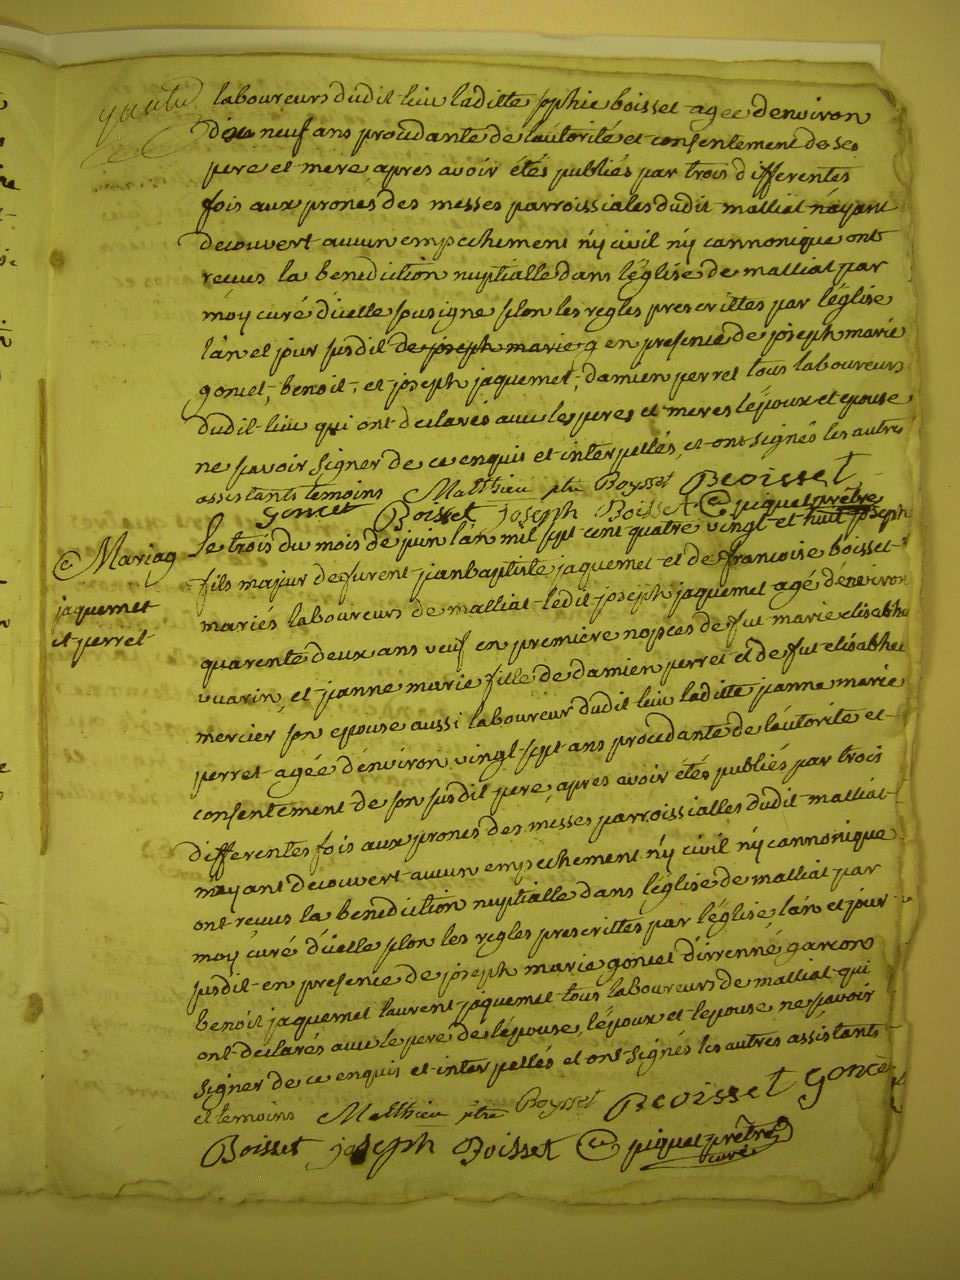 laboureurs dudit lieu laditte sophie boisset agee denviron
dix neuf ans procedante de lautorité et consentement de ses
pere et mere apres avoir étés publiés par trois differentes
fois aux prones des messes parroissiales dudit mattiat nayant
decouvert aucun empechement n'ÿ civil n'ÿ cannonique ont
recus la benediction nuptialle dans léglise de mattiat par
moy curé dicelle sousigne selon les regles prescrittes par léglise
lan et jour susdit de joseph marie g en presence de joseph marie
goncet, benoit, et joseph jaquemet, damien perret tous laboureurs
dudit lieu qui ont declarés avec les peres et meres lépoux et epouse
ne savoir signer de ce enquis et interpellés, et ont signés les autres
assistants temoins Matthieu ptre Boysset Beoisset
goncet Boisset joseph Boisset piquet prêtre
Mariag
jaquemet
et perret
Le trois du mois de juin lan mil sept cent quatre vingt et huit joseph
fils majeur de furent jeanbaptiste jaquemet et de francoise boisset
mariés laboureurs de mattiat ledit joseph jaquemet agé d'environ
quarente deux ans veuf en premiere nopces de fut marie elisabhet
vuarin, et jeanne marie fille de damien perret et de fut elisabhet
mercier son epouse aussi laboureur dudit lieu laditte jeanne marie
perret agée d'environ vingt sept ans procedante de lautorite et
consentement de son susdit pere, apres avoir étés publiés par trois
differentes fois aux prones des messes parroissialles dudit mattiat
nayant decouvert aucun empechement n'ÿ civil n'ÿ cannonique
ont recus la benediction nuptialle dans léglise de mattiat par
moy curé d'icelle selon les regles prescrittes par léglise, lan et jour
susdit en presence de joseph marie goncet d'irrenné garcon
benoit jaquemet laurent jaquemet tous laboureurs de mattiat qui
ont declarés avec le pere de lépouse, lépoux et lepouse ne savoir
signer de ce enquis et interpellés et ont signés les autres assistants
et temoins Matthieu ptre Boysset Beoisset goncet
Boisset joseph Boisset piquet prêtre
curé